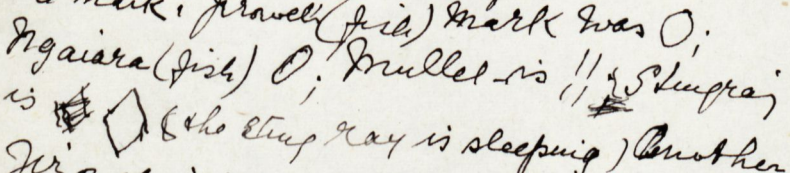 a mark, (fish) Mark was O;
Ngaiara (fish) O; Mullet is !! & Stingray
is ◇ (the sting ray is sleeping) Another